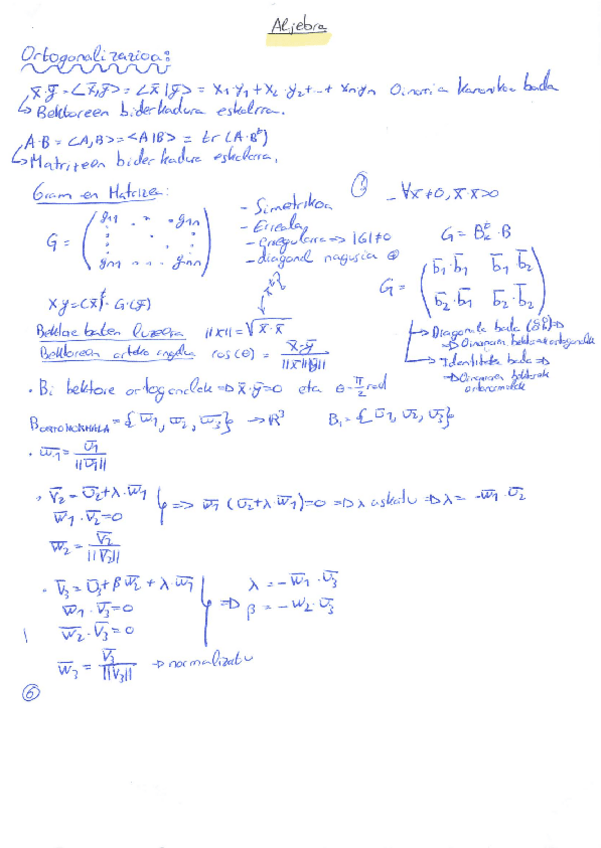 Aljebra
Ortogonalizazioa:
x̄·ȳ = <x̄,ȳ> = <x̄|ȳ> = x₁·y₁+x₂·y₂+...+xₙyₙ Oinarria kanonikoa bada
↳ Bektoreen biderkadura eskalarra.
A·B = <A,B> = <A|B> = tr(A·Bᵗ)
↳ Matrizeen biderkadura eskalarra.
Gram en Matrizea:
G = (g₁₁ . . . g₁ₙ
: . :
gₙ₁ . . . gₙₙ)
- Simetrikoa
- Erreala
- erregularra => |G|≠0
- diagonal nagusia ⊕
! - ∀x̄≠0, x̄·x̄>0
G = Bᵗ·B
G = (b̄₁·b̄₁ b̄₁·b̄₂
b̄₂·b̄₁ b̄₂·b̄₂)
→ Diagonala bada =>
=> Oinarriaren bektoreak ortogonalak
→ Identitatea bada =>
=> Oinarriaren bektoreak ortonormalak
x̄ȳ = (x̄)ᵗ·G·(ȳ)
Bektore baten luzera ||x̄|| = √(x̄·x̄)
Bektoreen arteko angelua cos(θ) = x̄·ȳ / ||x̄||·||ȳ||
· Bi bektore ortogonalak => x̄·ȳ=0 eta θ=π/2 rad
B ORTONORMALA = {w̄₁, w̄₂, w̄₃} → ℝ³ B₁ = {ū₁, ū₂, ū₃}
· w̄₁ = ū₁ / ||ū₁||
· v̄₂ = ū₂+λ·w̄₁
w̄₁·v̄₂=0
=> w̄₁(ū₂+λ·w̄₁)=0 => λ askatu => λ = -w̄₁·ū₂
w̄₂ = v̄₂ / ||v̄₂||
· v̄₃ = ū₃+βw̄₂+λ·w̄₁
w̄₁·v̄₃=0
w̄₂·v̄₃=0
=> λ = -w̄₁·ū₃
β = -w̄₂·ū₃
w̄₃ = v̄₃ / ||v̄₃|| → normalizatu
6